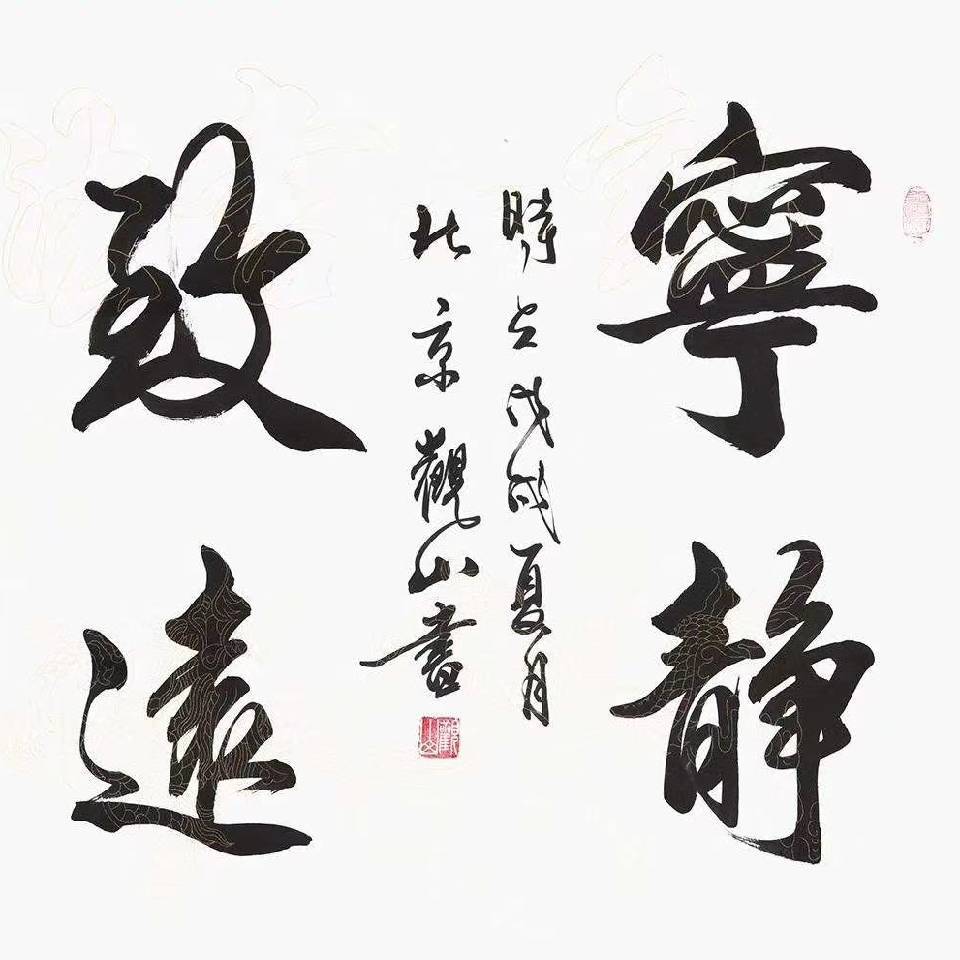 寧静
時在戊戌夏月
北京觀山書
觀山
致遠